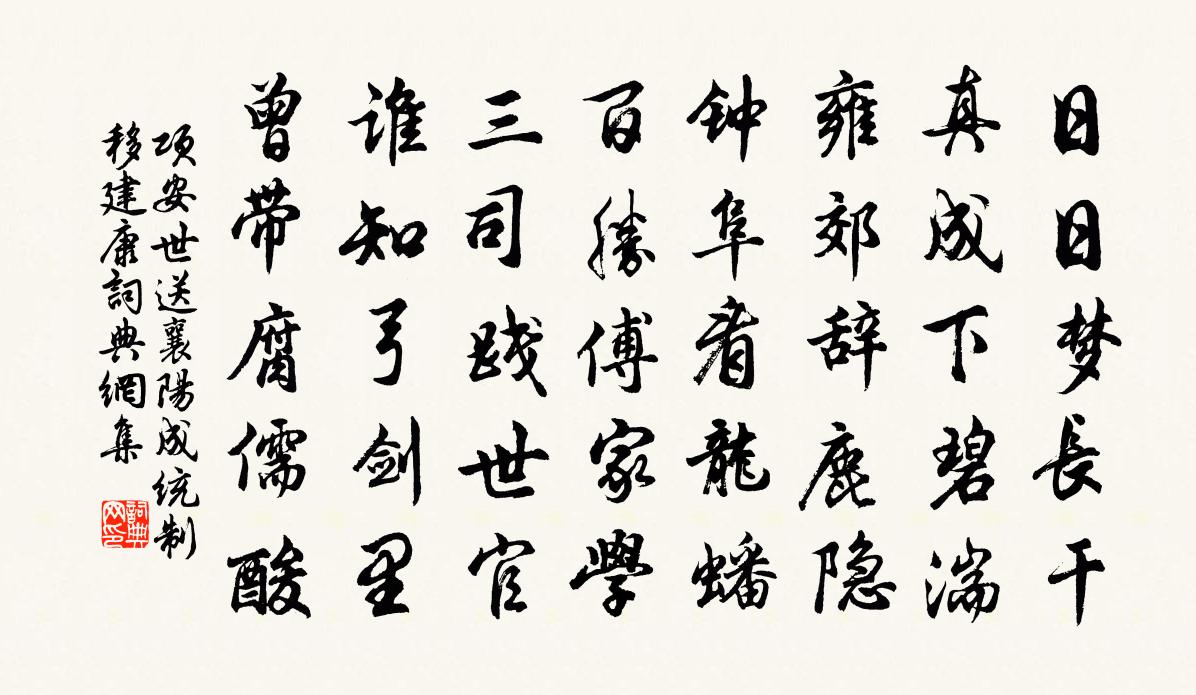 日日梦長干
真成下碧湍
雍郊辞鹿隐
钟阜看龍蟠
百勝傅家學
三司践世官
谁知弓剑里
曾带腐儒酸
项安世送襄陽成统制
移建康詞典網集
詞典网印